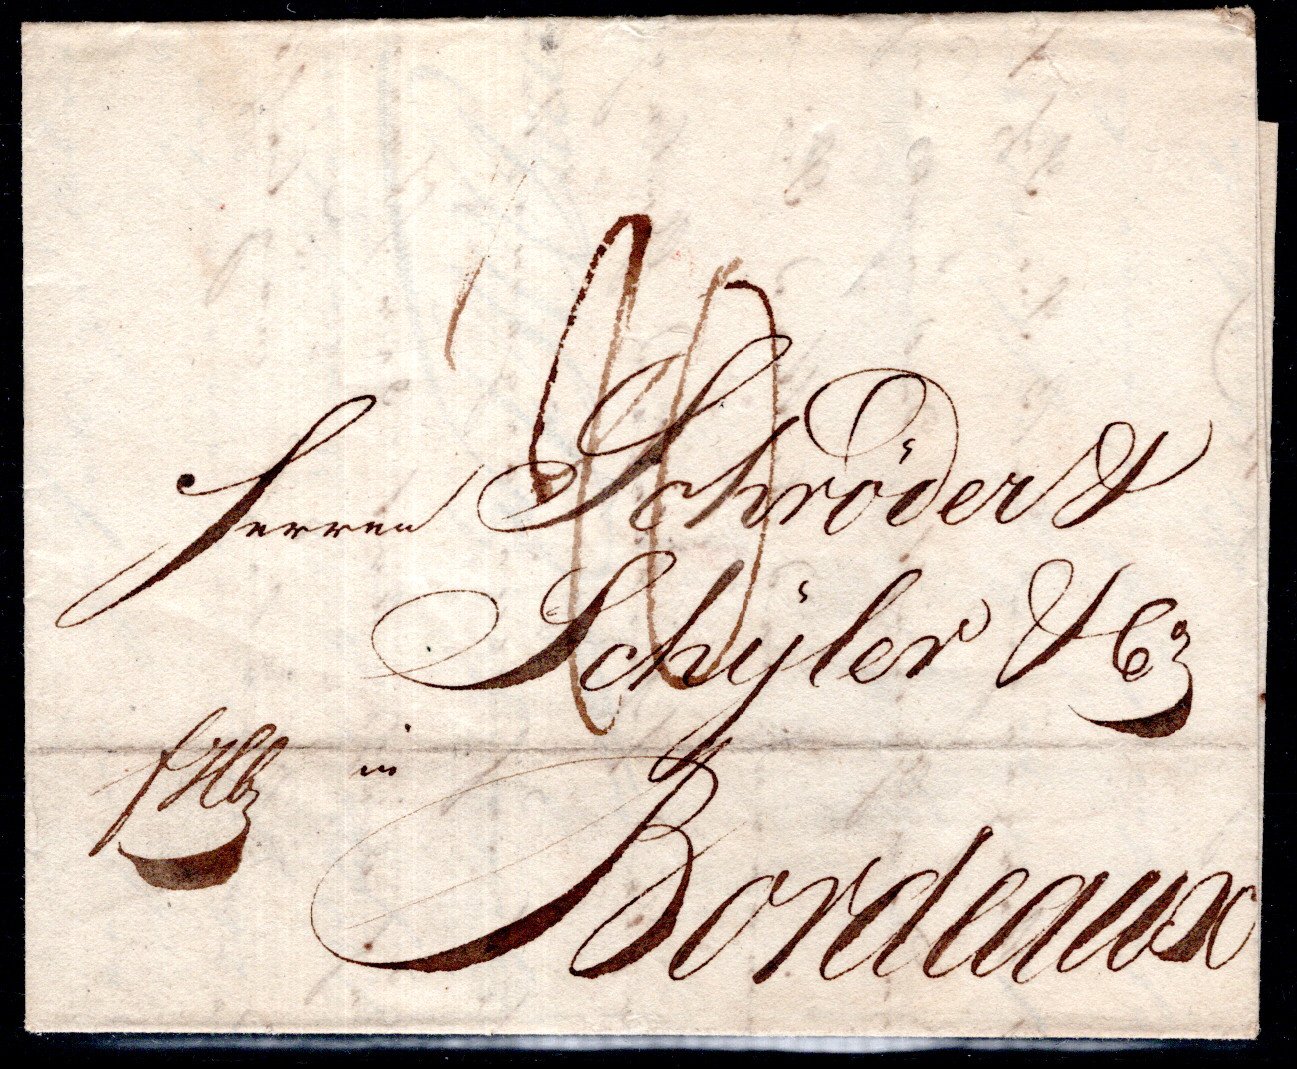 Herren Schröder &
Schÿler & Co
in
Bordeaux